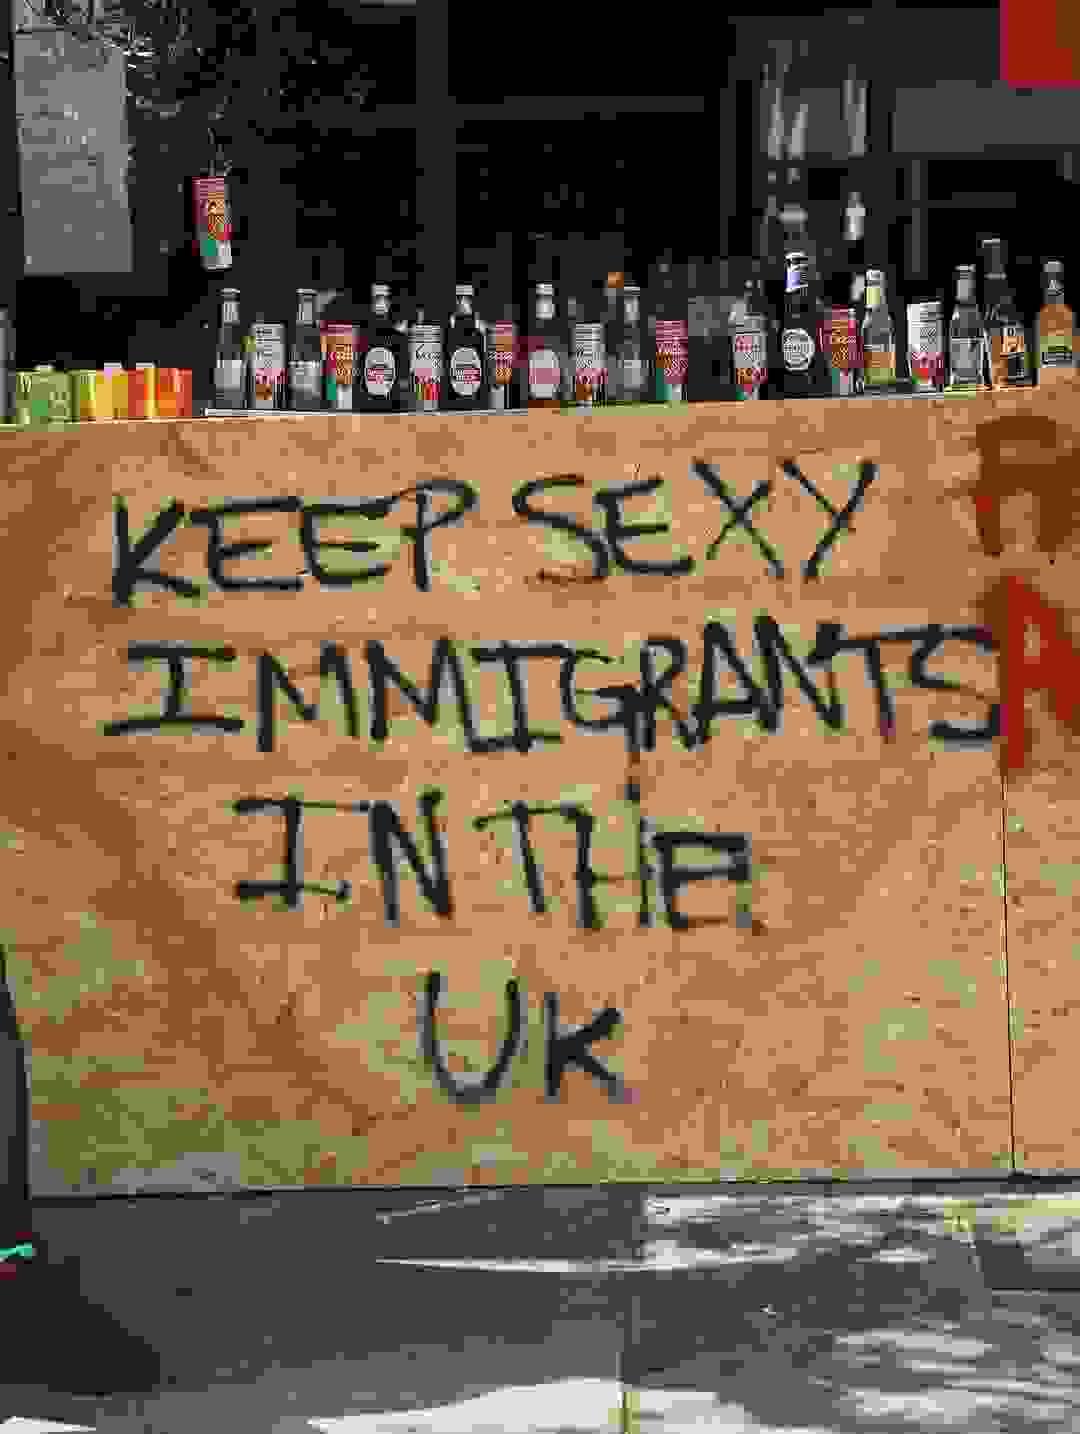 KEEP SEXY
IMMIGRANTS
IN THE
UK